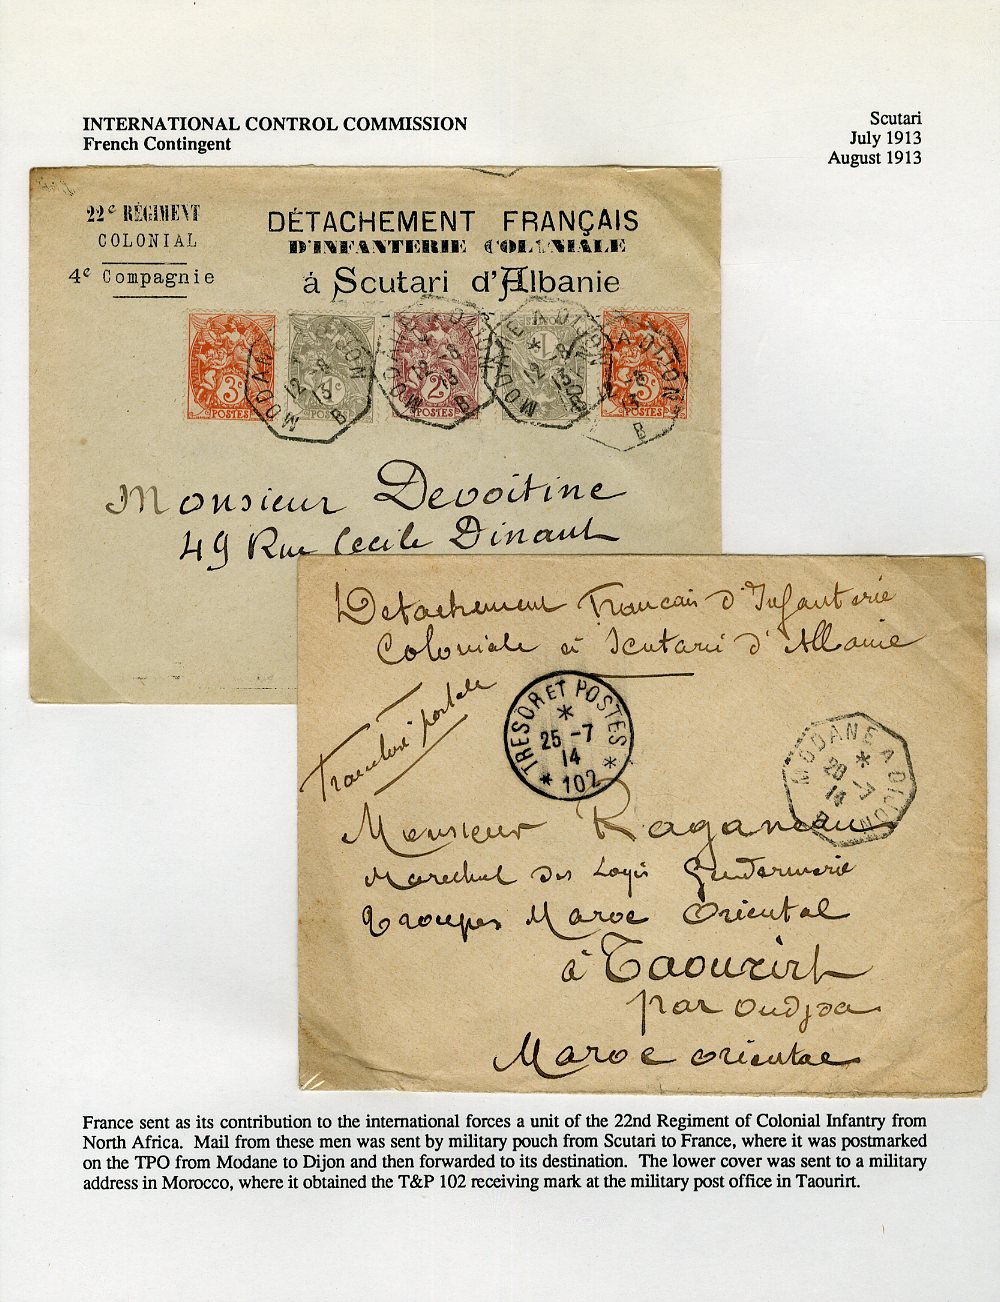 INTERNATIONAL CONTROL COMMISSION
French Contingent
Scutari
July 1913
August 1913
22e RÉGIMENT
COLONIAL
4e Compagnie
DÉTACHEMENT FRANÇAIS
D'INFANTERIE COLONIALE
à Scutari d'Albanie
3c POSTES
1c POSTES
2c POSTES
1c
3c POSTES
MODANE A DIJON
12 -8
13
B
MODANE A DIJON
* -8
12 13
B
MODANE A DIJON
* -8
12 13
MODANE A DIJON
12 -8
13
B
Monsieur Devoitine
49 Rue Cecile Dinant
Detachement Francais d'Infanterie
Coloniale à Scutari d'Albanie
TRESOR ET POSTES
*
25 -7
14
* 102 *
MODANE A DIJON
*
28 -7
14
B
Monsieur Raganeau
Marechal des Logis Gendarmerie
Troupes Maroc Oriental
à Taourirt
par Oudjda
Maroc oriental
France sent as its contribution to the international forces a unit of the 22nd Regiment of Colonial Infantry from
North Africa. Mail from these men was sent by military pouch from Scutari to France, where it was postmarked
on the TPO from Modane to Dijon and then forwarded to its destination. The lower cover was sent to a military
address in Morocco, where it obtained the T&P 102 receiving mark at the military post office in Taourirt.